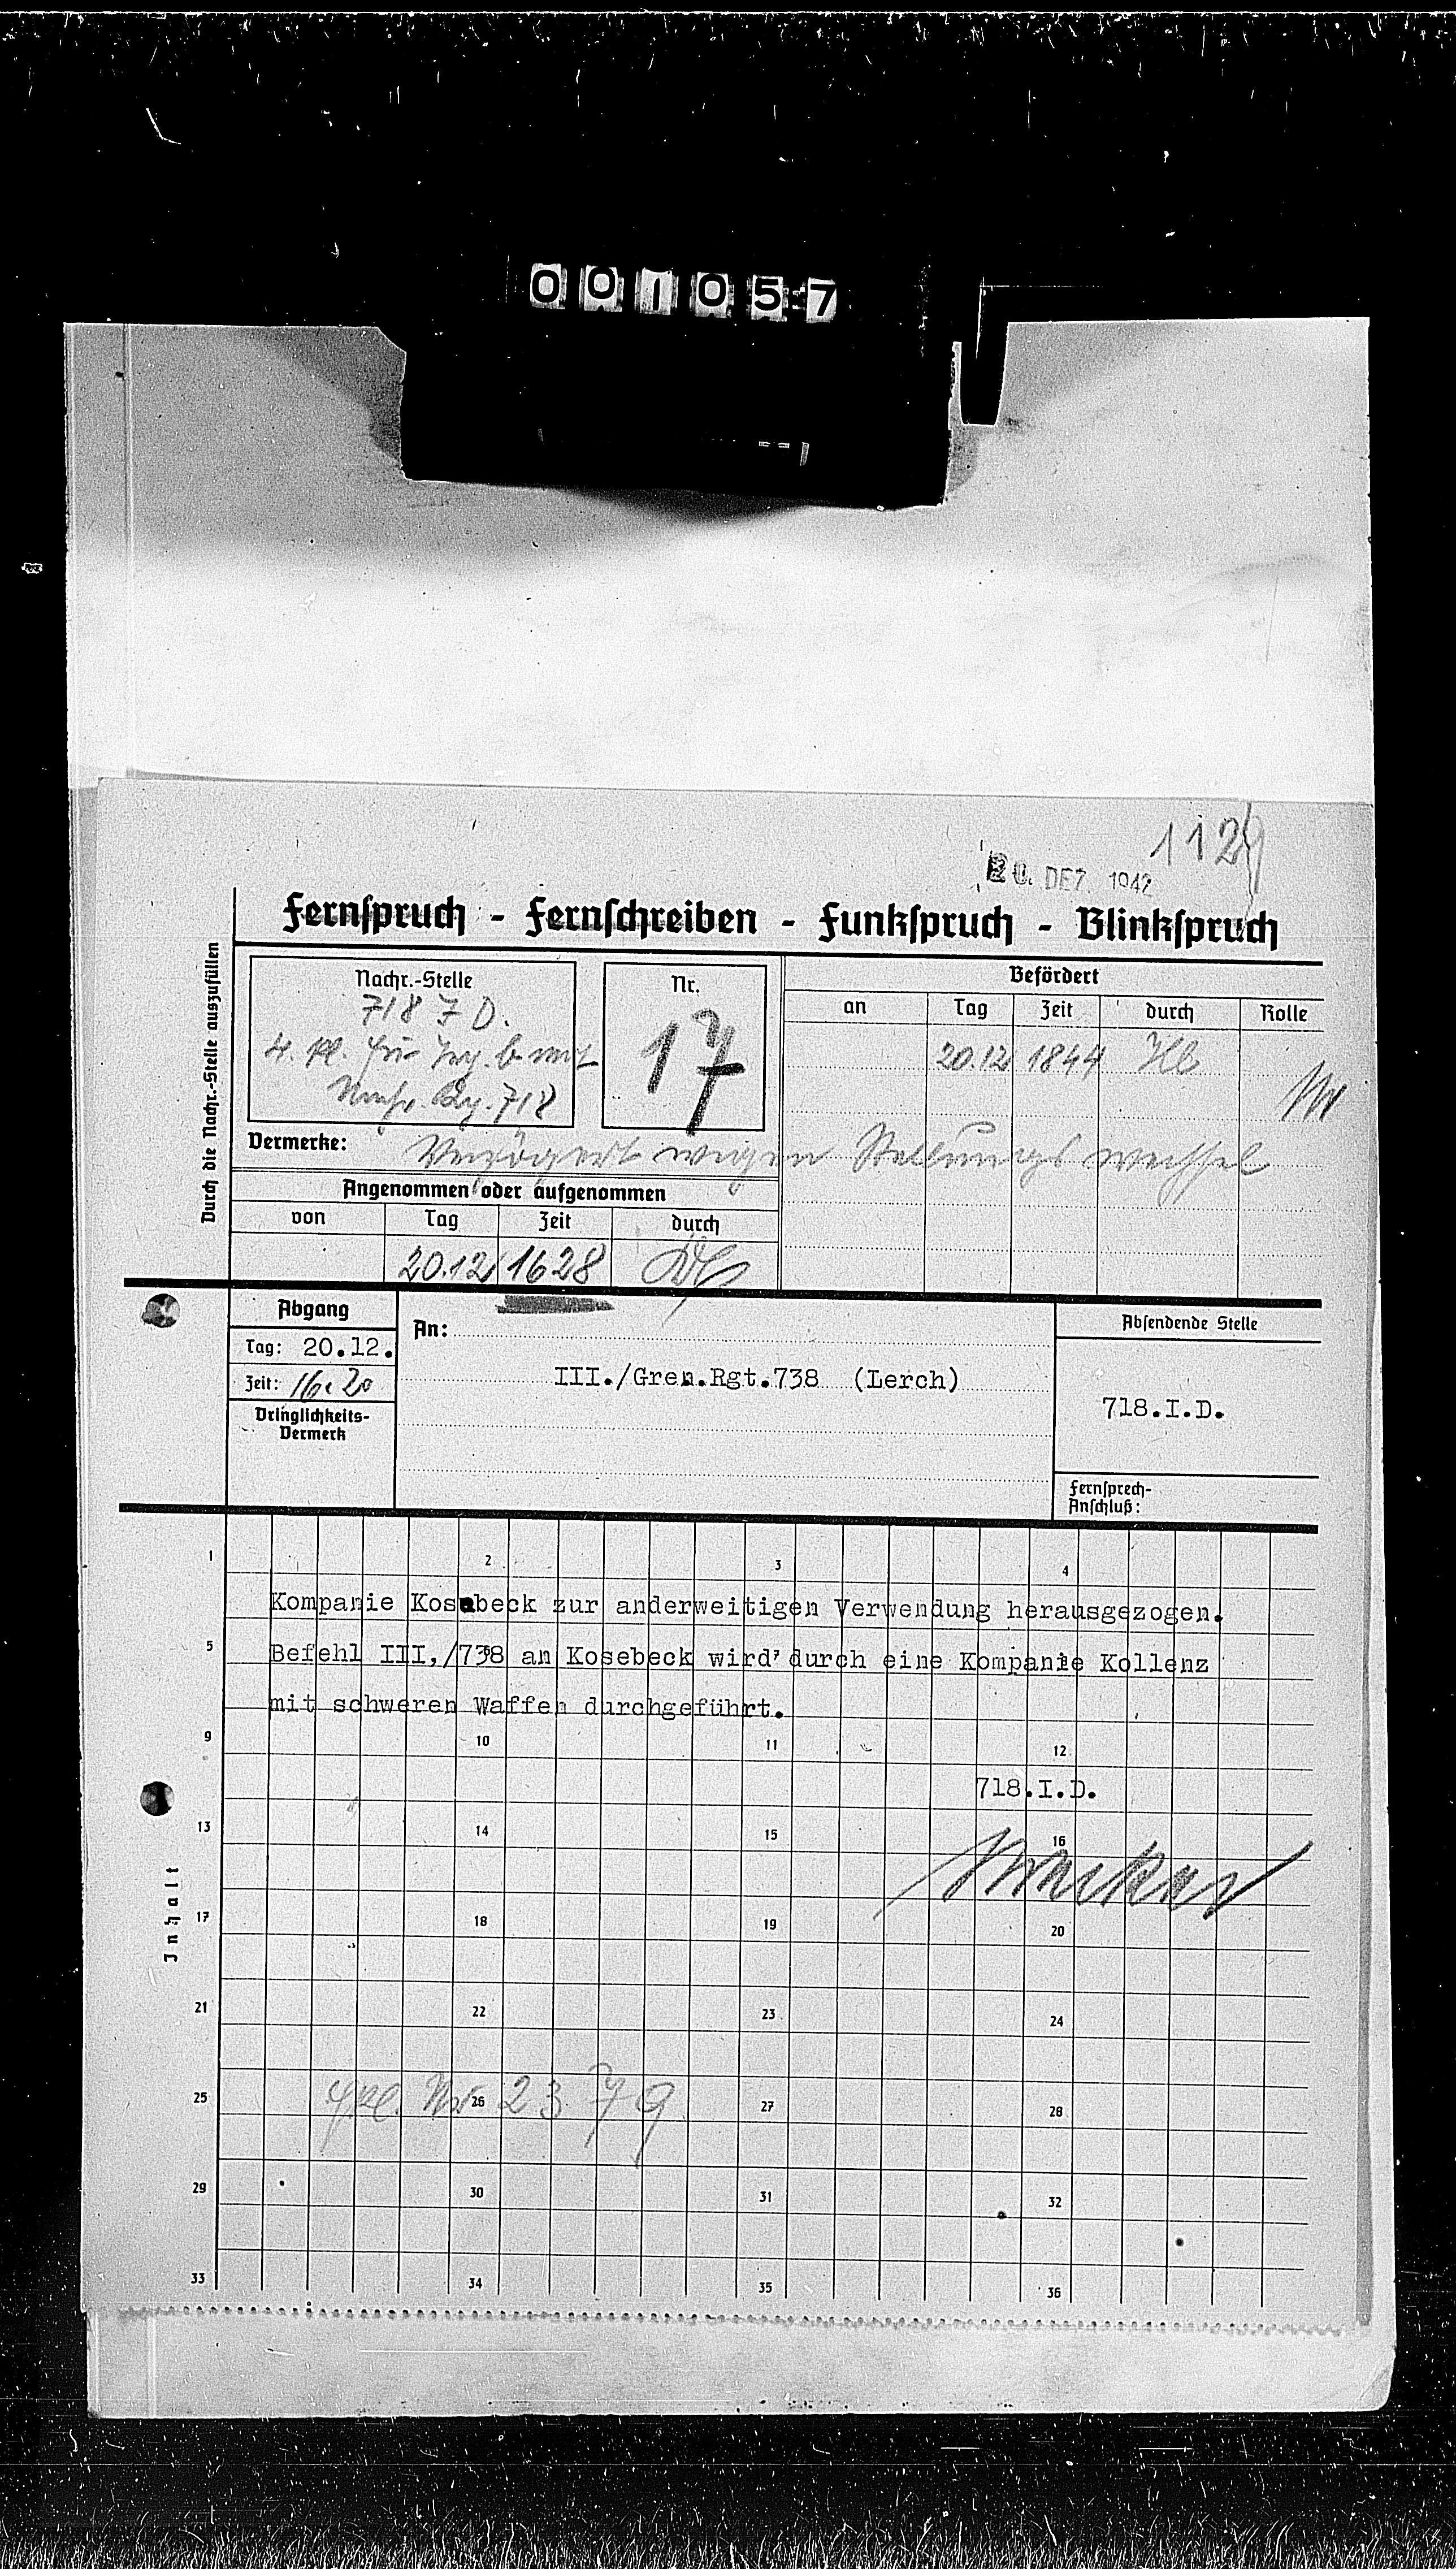 001057
112
20. DEZ. 1942
Fernspruch - Fernschreiben - Funkspruch - Blinkspruch
Durch die Nachr.-Stelle auszufüllen
Nachr.-Stelle
718 J D.
718
Nr.
17
Befördert
an Tag Zeit durch Rolle
20.12 1844
Vermerke: Verzögert wegen Stellungswechsel
Angenommen oder aufgenommen
von Tag Zeit durch
20.12 1628
Abgang
Tag: 20.12.
Zeit: 16.20
Dringlichkeits-
Vermerk
An:
III./Gren.Rgt.738 (Lerch)
Absendende Stelle
718.I.D.
Fernsprech-
Anschluß:
1 2 3 4
Kompanie Kosebeck zur anderweitigen Verwendung herausgezogen.
5
Befehl III,/738 an Kosebeck wird durch eine Kompanie Kollenz
mit schweren Waffen durchgeführt.
9 10 11 12
718.I.D.
13 14 15 16
Inhalt
17 18 19 20
21 22 23 24
25 26 27 28
Nr 2379
29 30 31 32
33 34 35 36